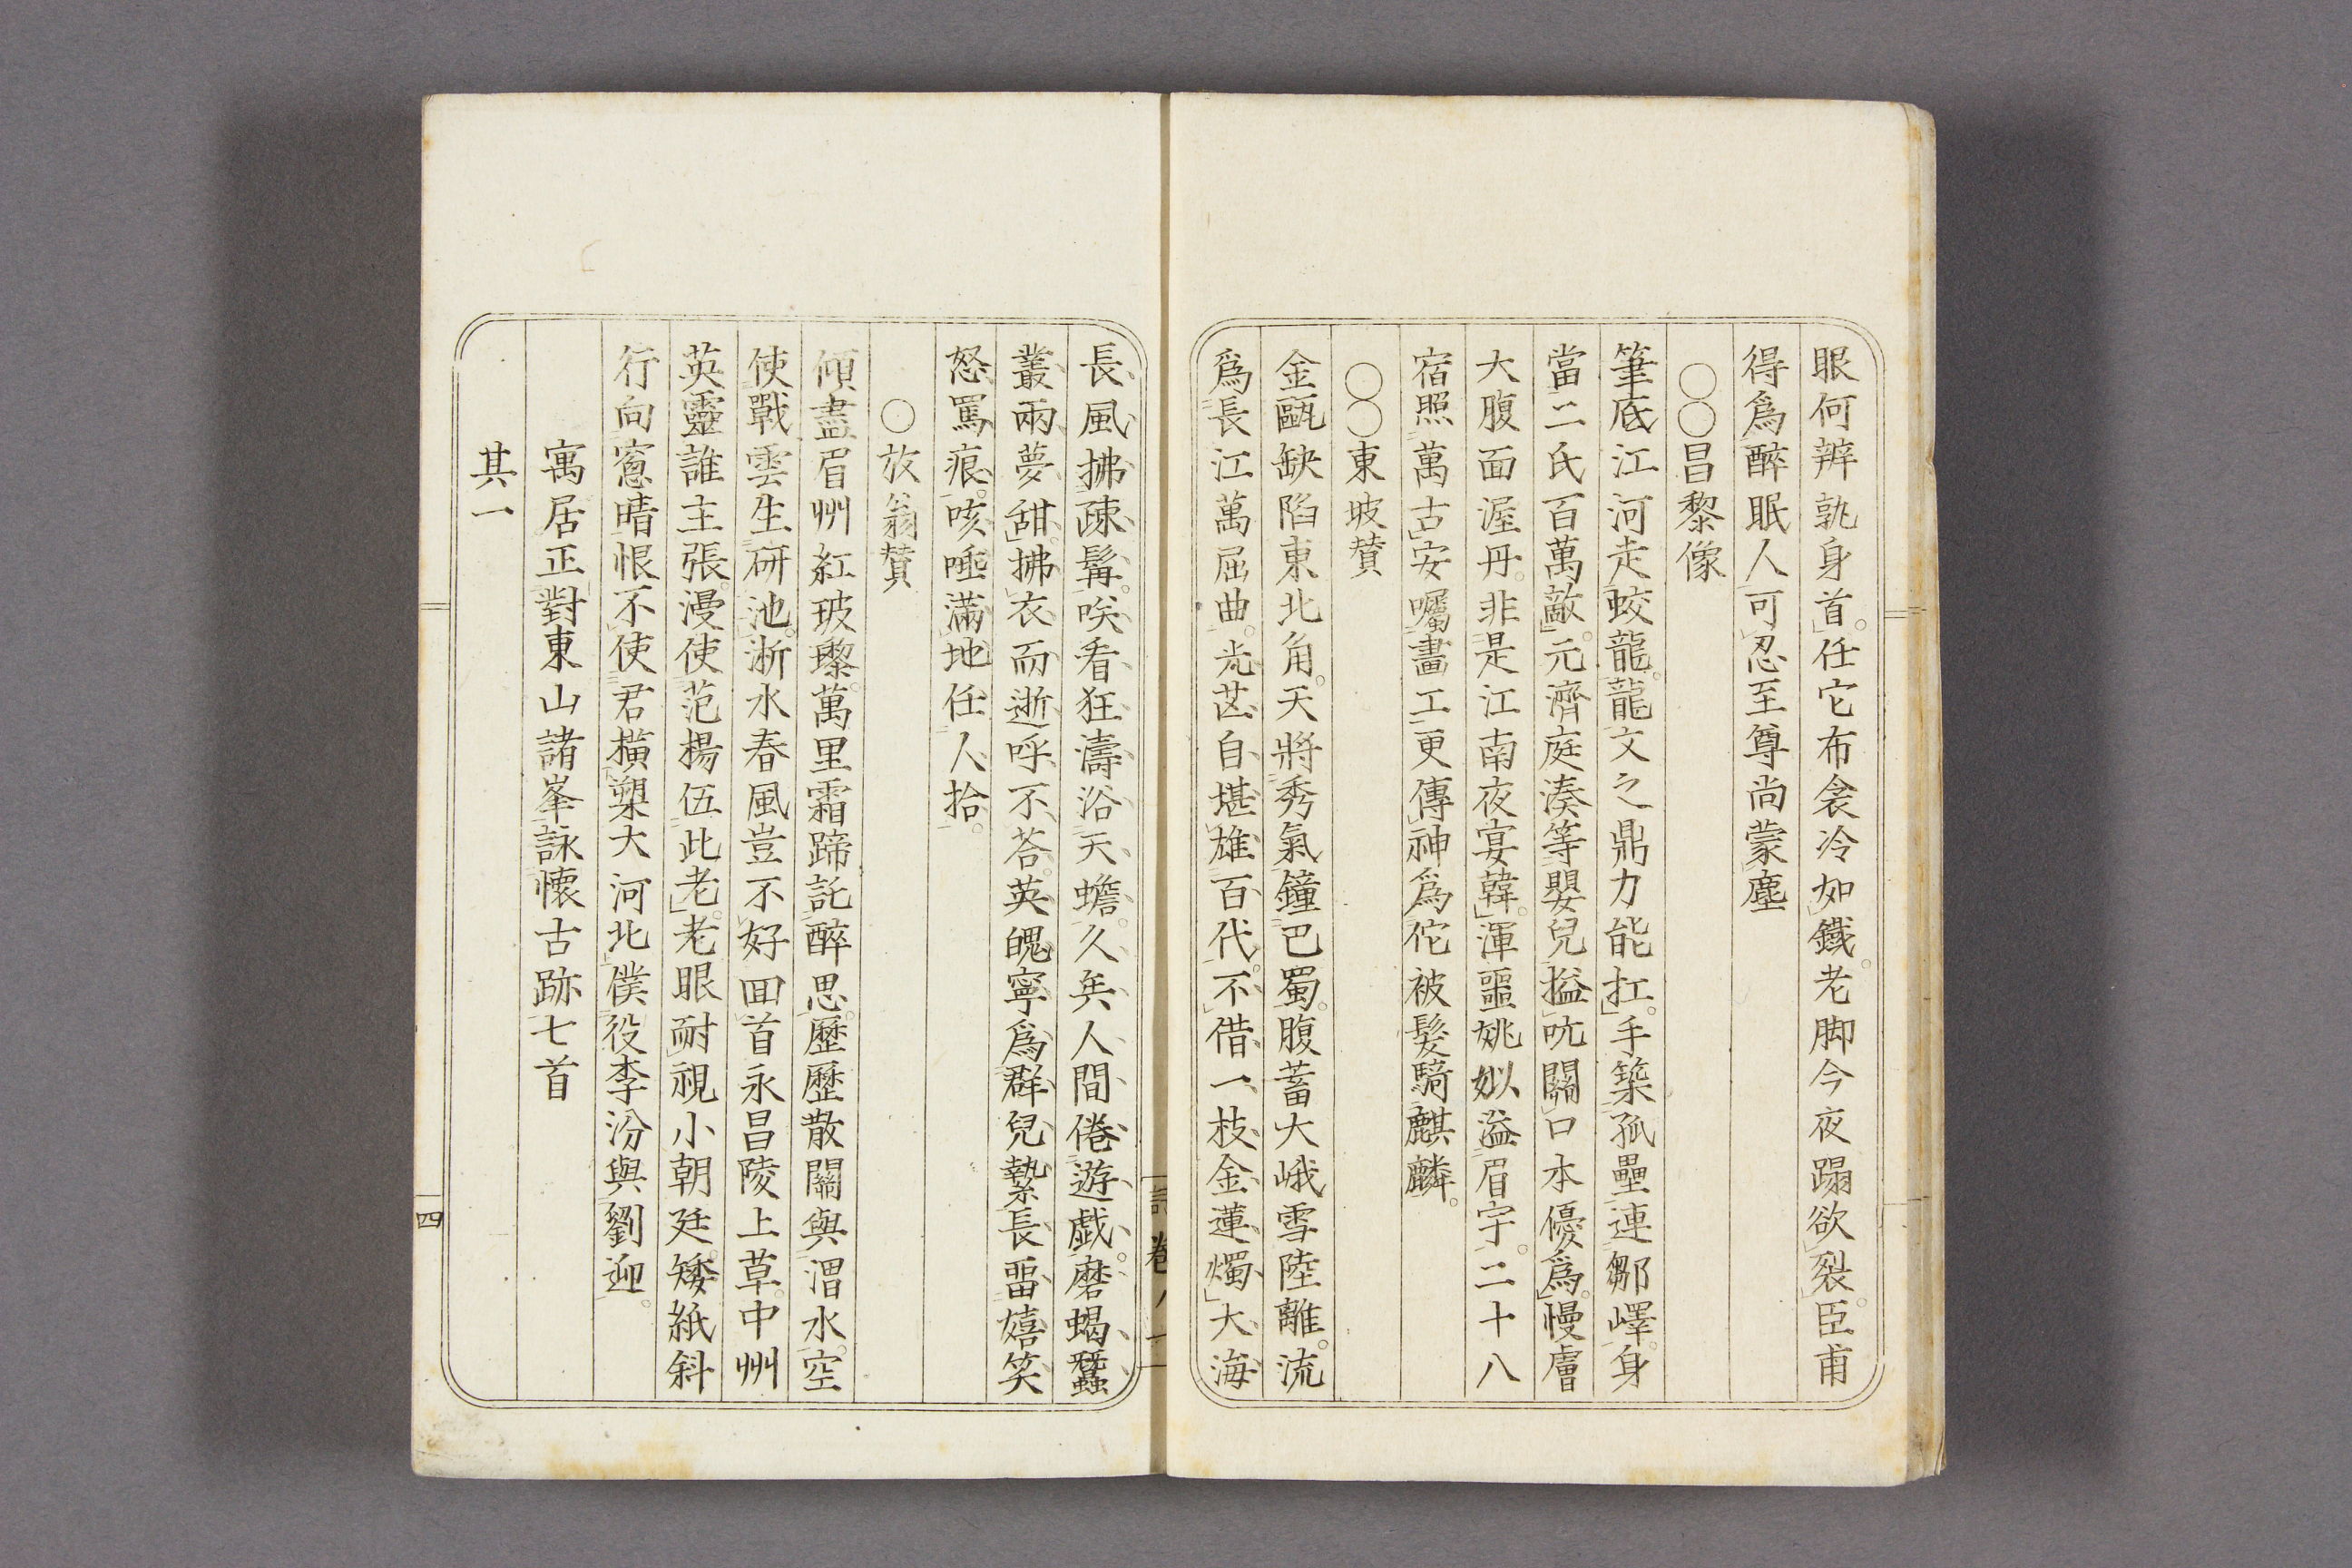 眼何辨孰身首任它布衾冷如鐵老脚今夜蹋欲裂臣甫
得爲醉眠人可忍至尊尚蒙塵
○○昌黎像
筆底江河走蛟龍龍文之鼎力能扛手築孤壘連鄒嶧身
當二氏百萬敵元濟庭湊等嬰兒搤吭關口本優爲慢膚
大腹面渥丹非是江南夜宴韓渾噩姚姒溢眉宇二十八
宿照萬古安囑畫工更傳神爲佗被髮騎麒麟
○○東坡賛
金甌缺陷東北角天將秀氣鐘巴蜀腹蓄大峨雪陸離流
爲長江萬屈曲光芒自堪雄百代不借一枝金蓮燭大海
長風拂疎髯唉看狂濤浴天蟾久矣人間倦遊戯磨蝎蠶
叢兩夢甜拂衣而逝呼不荅英魄寧爲群兒縶長畱嬉笑
怒罵痕咳唾滿地任人拾
○放翁賛
傾盡眉州紅玻瓈萬里霜蹄託醉思歷歷散關與渭水空
使戰雲生研池浙水春風豈不好回首永昌陵上草中州
英靈誰主張漫使范楊伍此老老眼耐視小朝廷矮紙斜
行向窻晴恨不使君橫槊大河北僕役李汾與劉迎
寓居正對東山諸峯詠懷古跡七首
其一
四